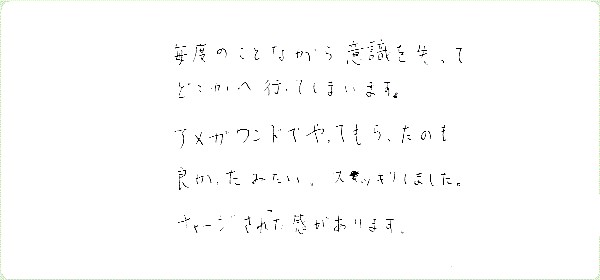 毎度のことながら意識を失って
どこかへ行ってしまいます。
アメガワンドでやってもらったのも
良かったみたい。スッキリしました。
チャージされた感があります。